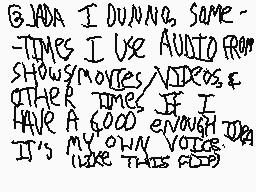 @JADA I DUNNO, SOME-
-TIMES I USE AUDIO FROM
SHOWS/MOVIES/VIDEOS, &
OTHER TIMES IF I
HAVE A GOOD ENOUGH IDEA
IT'S MY OWN VOICE.
(LIKE THIS FLIP)